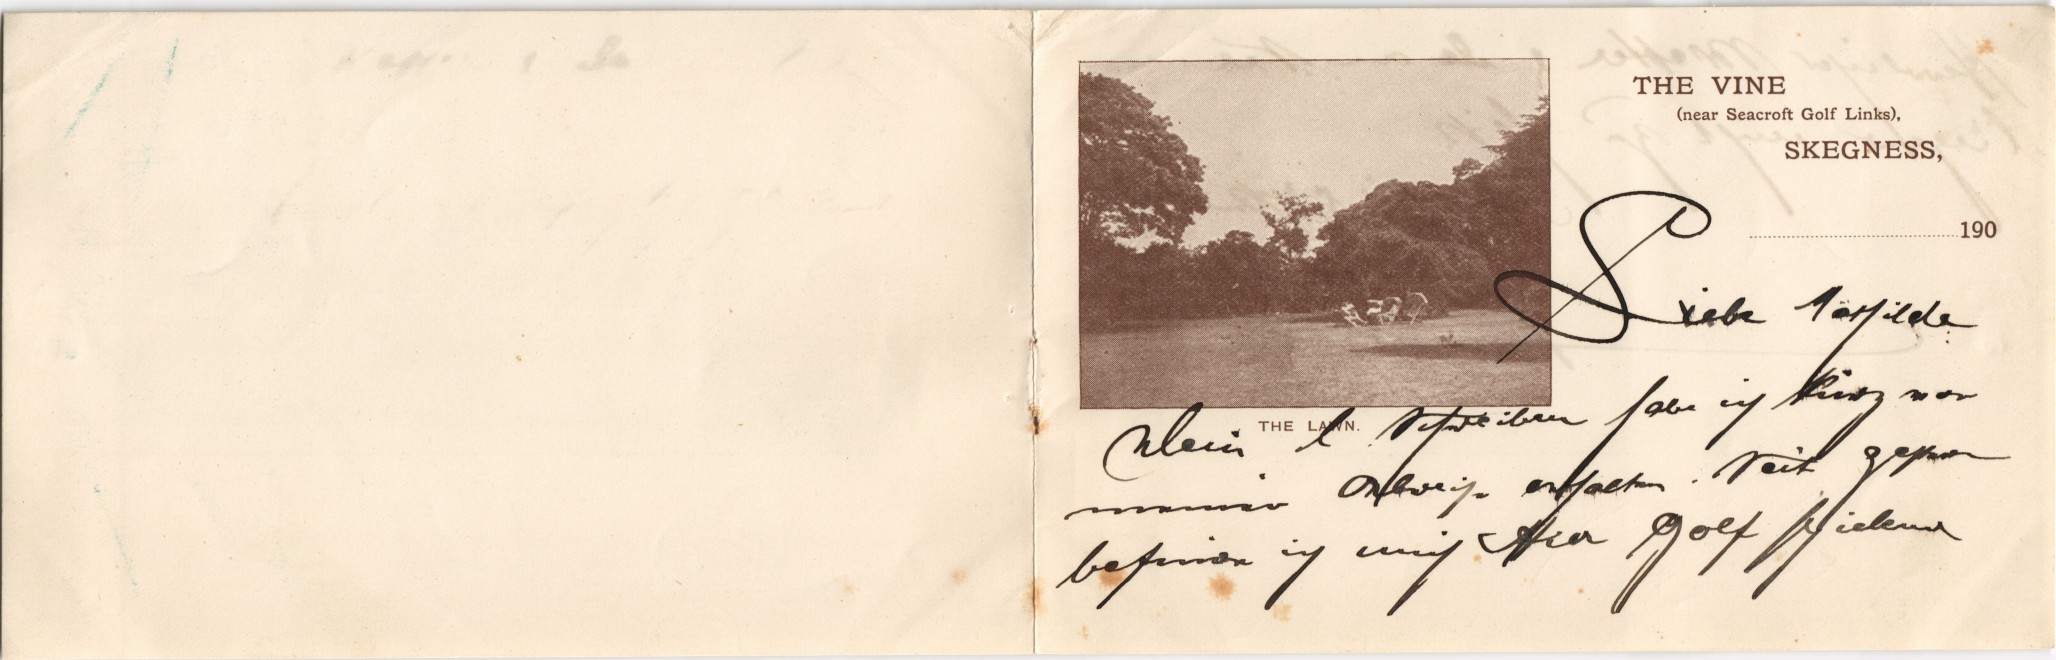 THE VINE
(near Seacroft Golf Links),
SKEGNESS,
190
Liebe Mathilde
THE LAWN.
Dein l. Schreiben habe ich kurz vor
meiner Abreise erhalten. Seit gestern
befinde ich mich hier Golf spielend